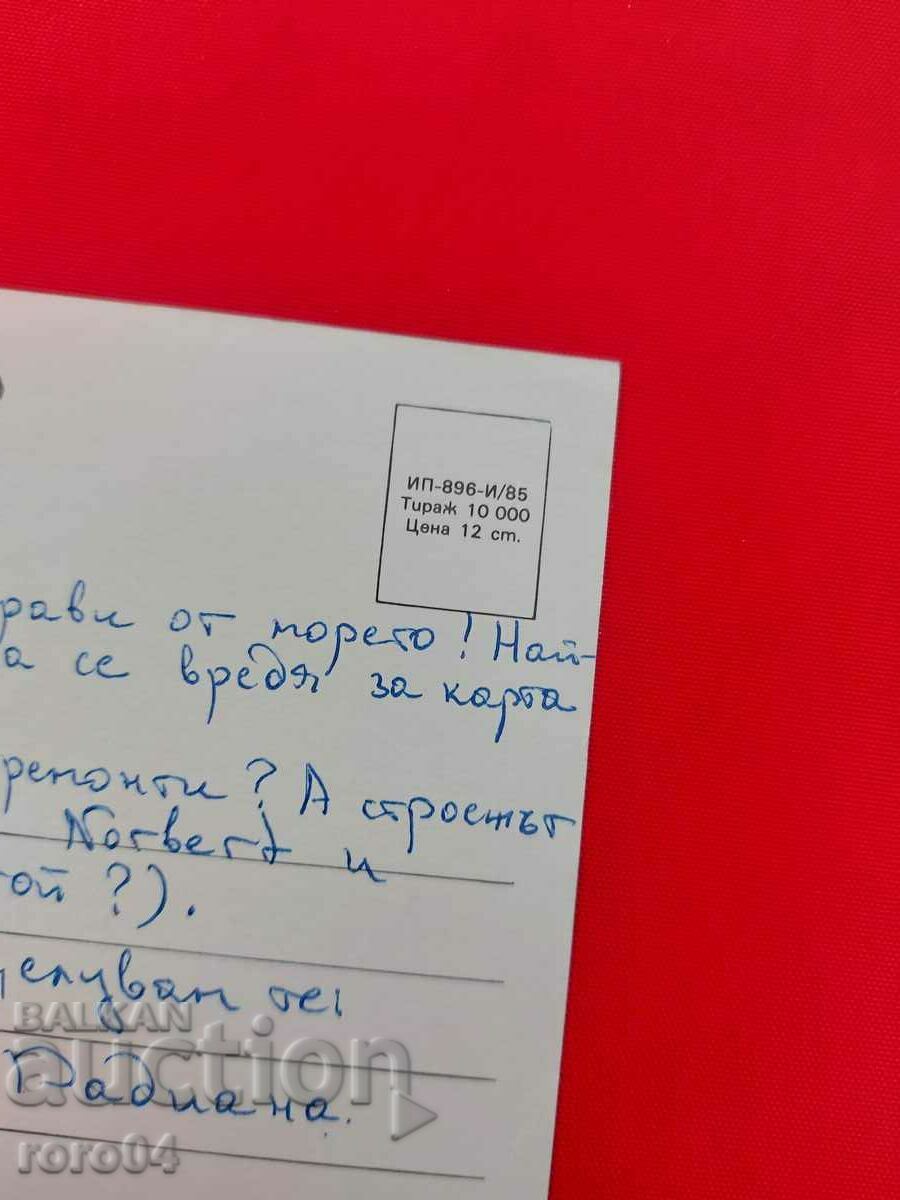 ИП-896-И/85
Тираж 10 000
Цена 12 ст.
рави от морето! Най-
а се вредя за карта
ремонти? А строежът
Norbert и
той ?).
целувам те,
Радиана.
BALKAN
auction
roro04